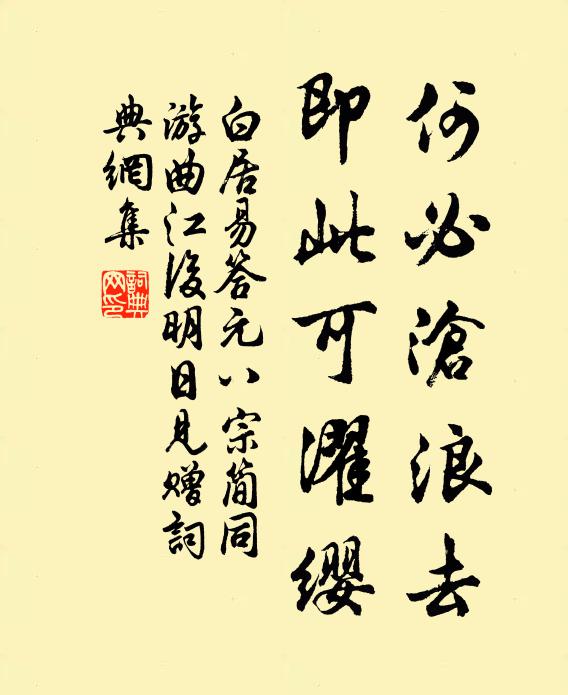 何必滄浪去
即此可濯纓
白居易答元八宗簡同
游曲江後明日見贈詞
典網集
詞典網印